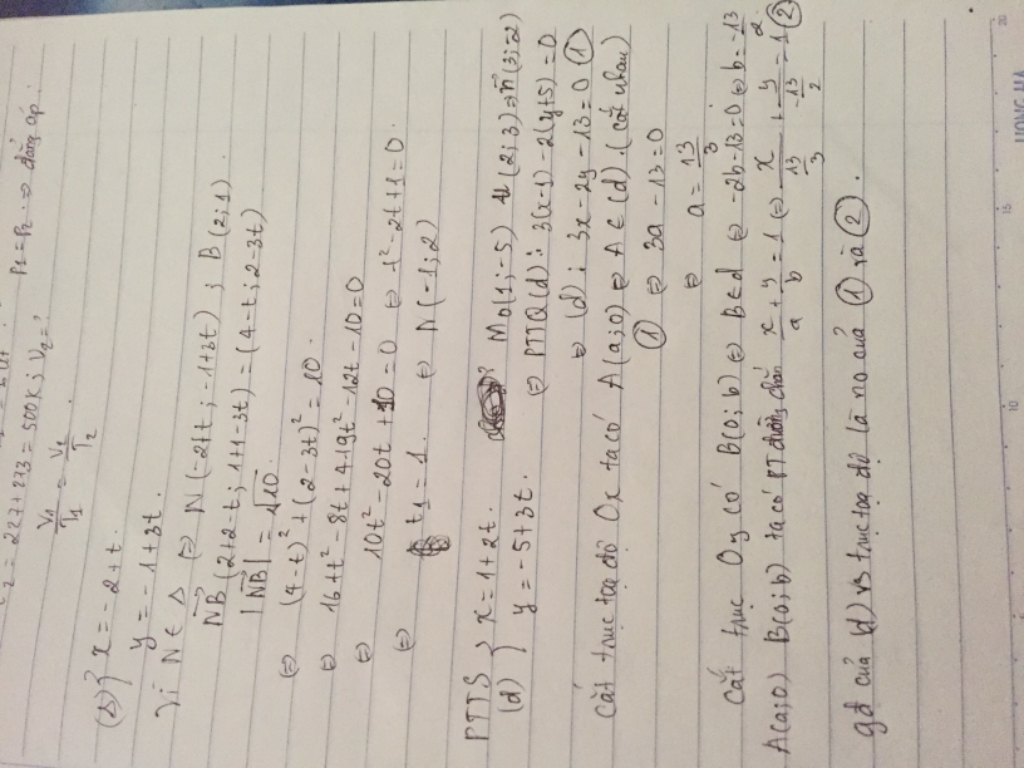 = 227+273 = 500K; V2=?
P1=P2 ⇒ đẳng áp.
V1/T1 = V2/T2
(Δ) { x = -2+t.
y = -1+3t.
Vì N ∈ Δ ⇔ N(-2+t; -1+3t); B(2;1)
NB→ (2+2-t; 1+1-3t) = (4-t; 2-3t)
|NB→| = √10.
⇔ (4-t)² + (2-3t)² = 10.
⇔ 16+t²-8t+4+9t²-12t-10=0
⇔ 10t²-20t+10=0 ⇔ t²-2t+1=0.
⇔ t1=1. ⇔ N(-1;2)
PTTS { x=1+2t. M0(1;-5) u→(2;3)⇒n→(3;-2)
(d) { y=-5+3t. ⇔ PTTQ(d): 3(x-1)-2(y+5)=0
⇔ (d): 3x-2y-13=0 ①
Cắt trục tọa độ Ox ta có A(a;0) ⇔ A∈(d). (cắt nhau)
① ⇔ 3a-13=0
⇔ a=13/3.
Cắt trục Oy có B(0;b) ⇔ B∈d ⇔ -2b-13=0 ⇔ b=-13/2.
A(a;0) B(0;b) ta có PT đường chắn x/a + y/b = 1 ⇔ x/(13/3) + y/(-13/2) = 1 ②
gđ của d) vs trục tọa độ là no của ① và ②.